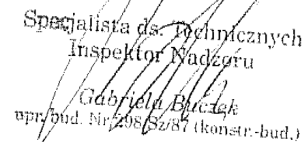 Specjalista ds. Technicznych
Inspektor Nadzoru
Gabriela Buczek
upr. bud. Nr 298/Sz/87 (konstr.-bud.)